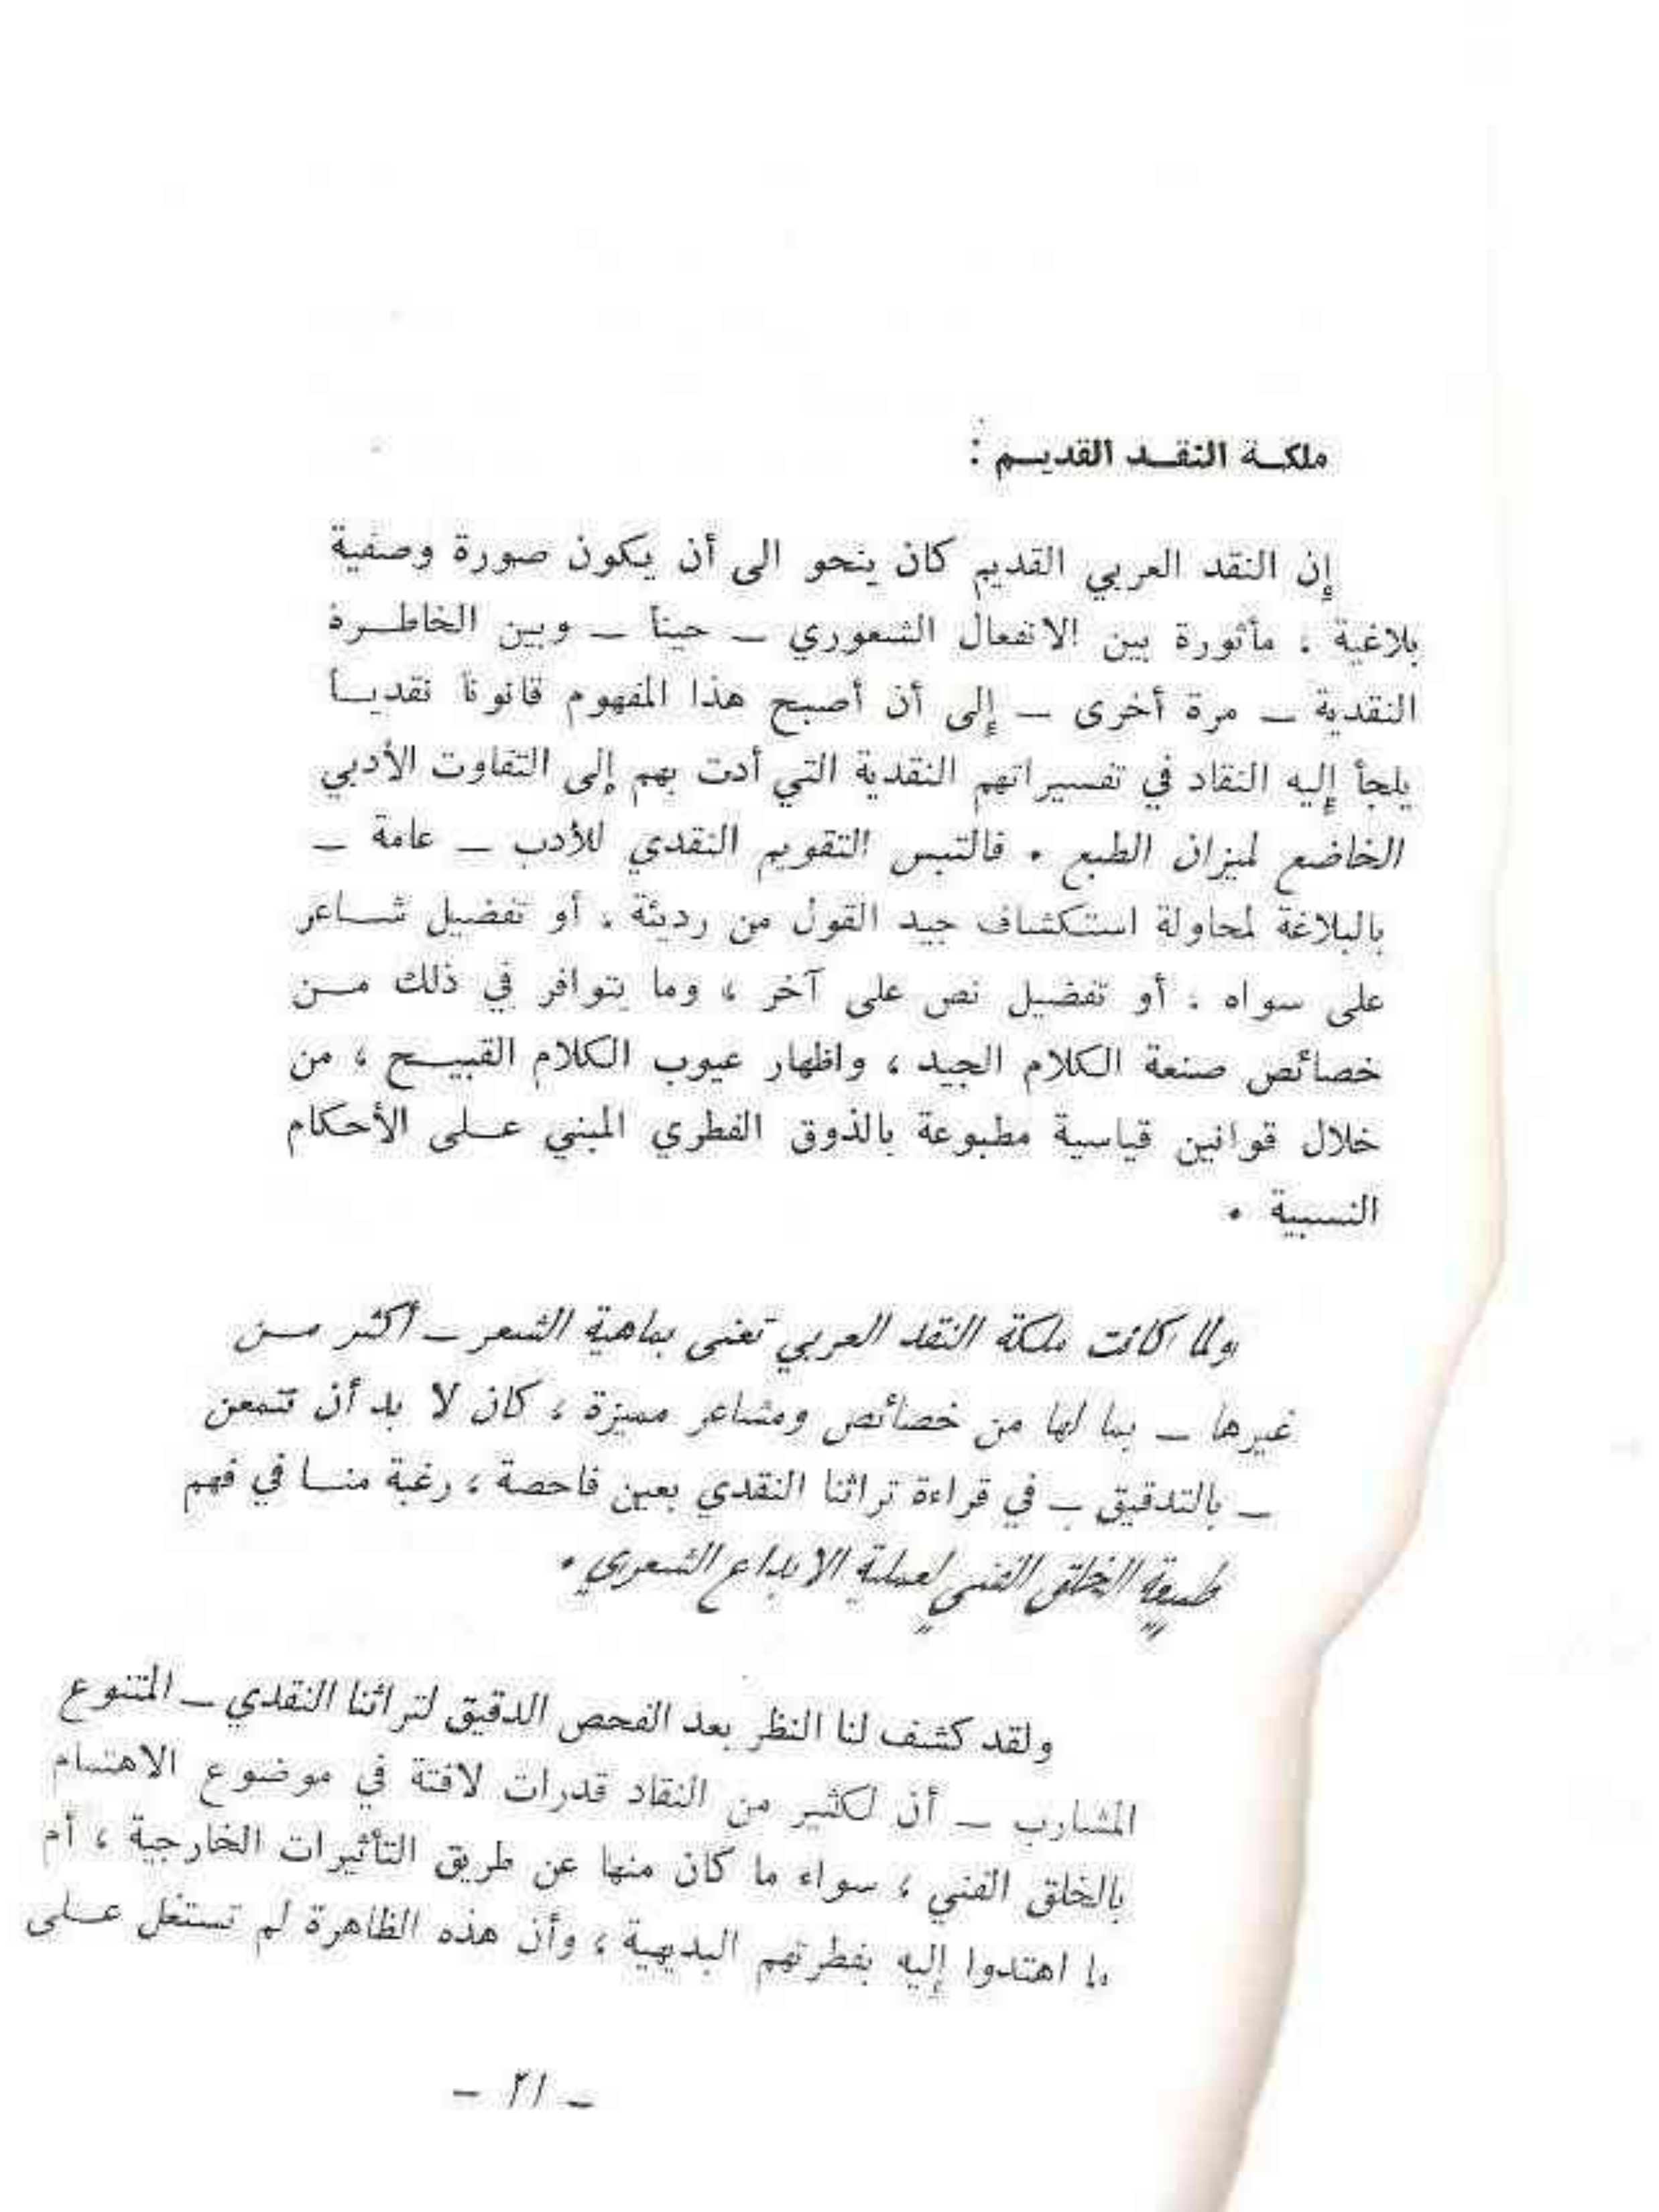 ملكة النقد القديم :
إن النقد العربي القديم كان ينحو الى أن يكون صورة وصفية
بلاغية ، مأثورة بين الانفعال الشعوري – حيناً – وبين الخاطرة
النقدية – مرة أخرى – إلى أن أصبح هذا المفهوم قانوناً نقدياً
يلجأ إليه النقاد في تفسيراتهم النقدية التي أدت بهم إلى التفاوت الأدبي
الخاضع لميزان الطبع . فالتبس التقويم النقدي للأدب – عامة –
بالبلاغة لمحاولة استكشاف جيد القول من رديئة ، أو تفضيل شاعر
على سواه ، أو تفضيل نص على آخر ، وما يتوافر في ذلك من
خصائص صنعة الكلام الجيد ، واظهار عيوب الكلام القبيح ، من
خلال قوانين قياسية مطبوعة بالذوق الفطري المبني على الأحكام
النسبية .
ولما كانت ملكة النقد العربي تعنى بماهية الشعر – أكثر من
غيرها – بما لها من خصائص ومشاعر مميزة ، كان لا بد أن نتمعن
– بالتدقيق – في قراءة تراثنا النقدي بعين فاحصة ، رغبة منا في فهم
طبيعة الخلق الفني لعملية الابداع الشعري .
ولقد كشف لنا النظر بعد الفحص الدقيق لتراثنا النقدي – المتنوع
المشارب – أن لكثير من النقاد قدرات لافتة في موضوع الاهتمام
بالخلق الفني ، سواء ما كان منها عن طريق التأثيرات الخارجية ، أم
ما اهتدوا إليه بفطرتهم البديهية ، وأن هذه الظاهرة لم تستغل على
– ٢١ –